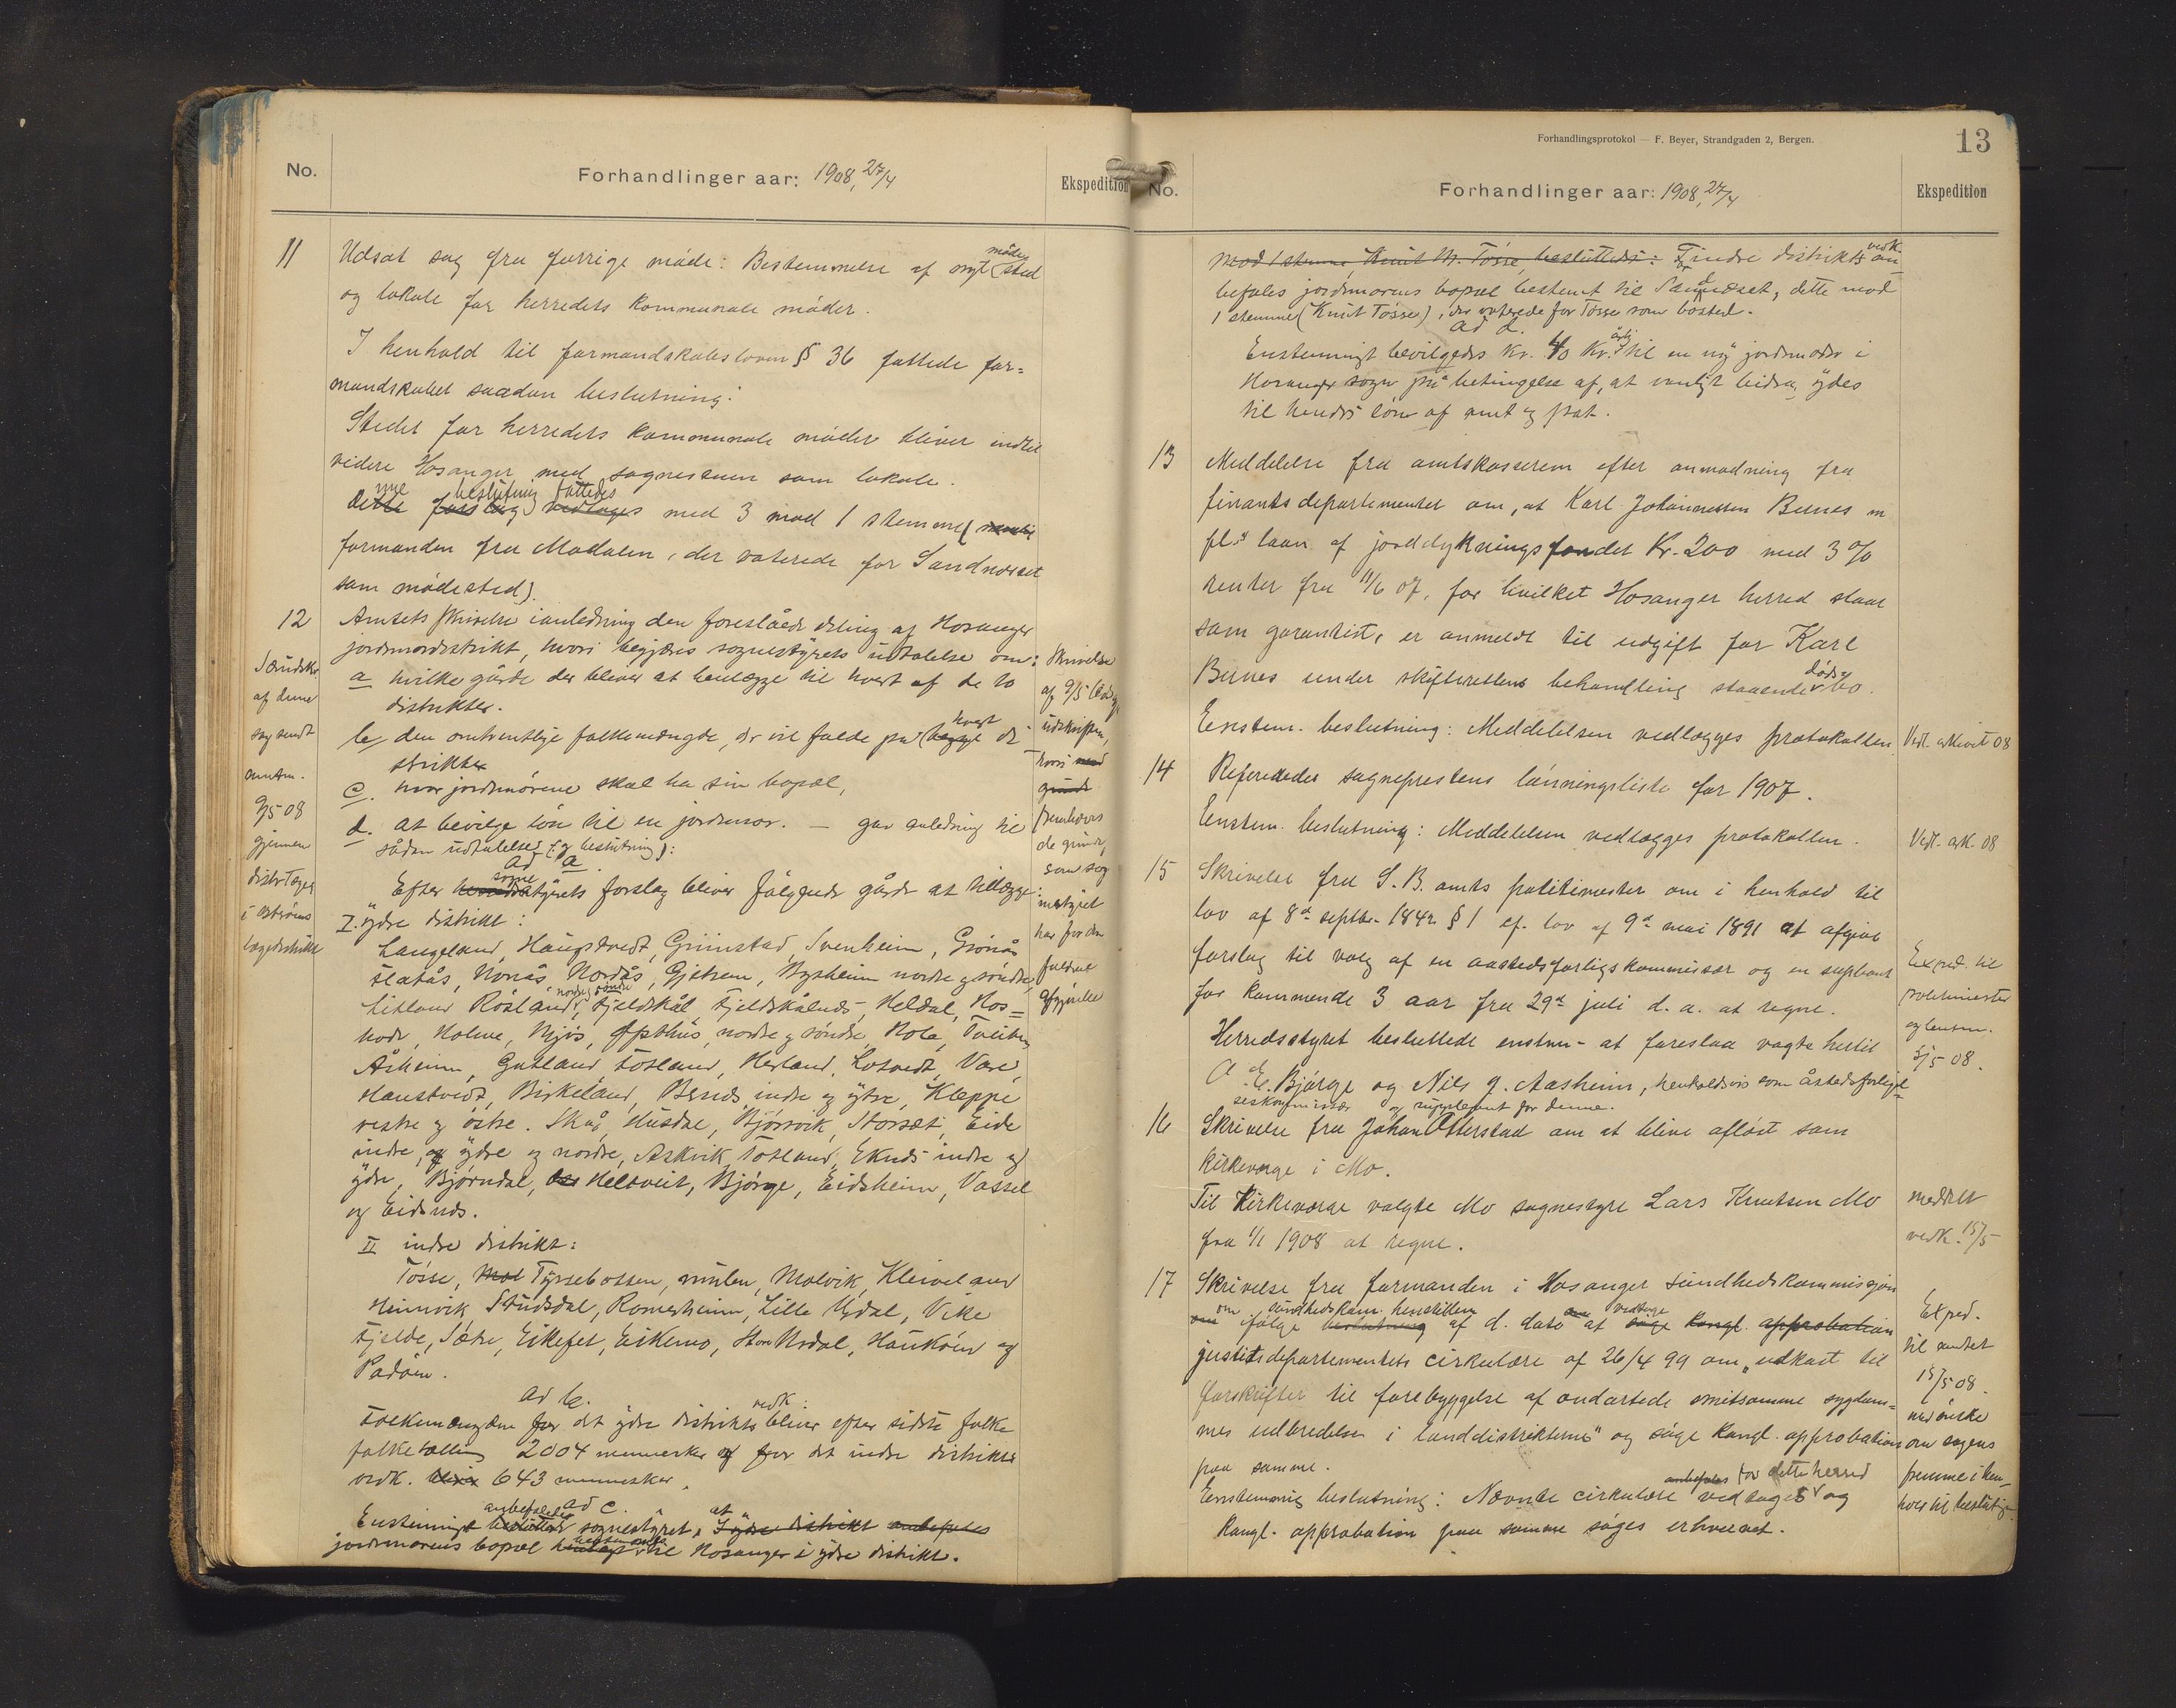 No.
Forhandlinger aar: 1908, 27/4
Ekspedition
11
Udsat sag fra forrige møde: Bestemmelse af nyt møde sted
og lokale for herredets kommunale møder.
I henhold til formandskabsloven § 36 fattede for=
mandskabet saadan beslutning:
Stedet for herredets kommunale møder bliver indtil
videre Hosanger med sognestuen som lokale.
nne beslutning fattedes
Dette forslag vedtoges med 3 mod 1 stemme (
formanden fra Modalen, der voterede for Sandnæset
som mødested).
12
Amtets skrivelse i anledning den foreslåede deling af Hosanger
jordmordistrikt, hvori begjæres sognestyrets udtalelse om:
a hvilke gårde der bliver at henlægge til hvert af de to
distrikter.
b, den omtrentlige folkemængde, der vil falde på hvert di-
strikt
c. hvor jordmørene skal ha sin bopæl,
d. at bevilge løn til en jordmor. — gav anledning til
sådan udtalelse (og beslutning):
ad a.
Efter sogne styrets forslag bliver følgende gårde at tillægge:
I. ydre distrikt:
Langeland, Haugstvedt, Grimstad, Svenheim, Grønås
Flatås, Nonås, Nordås, Gjetrem, Mysheim nordre og søndre,
Litland Rosland, nordre og søndre Fjeldskål, Fjeldskålnes, Heldal, Hos=
Holme, Mjøs, Opsthus, nordre og søndre,
Åsheim, Gutland Fotland, Herland, Lotvedt, Vare,
Hanstvedt, Birkeland, Bernes indre og ytre, Kleppe
vestre og østre. Skår, Husdal, Bjørsvik, Storset, Eide
indre, og ydre og nordre, Askvik, Totland, Eknes indre og
ydre, Bjørndal, Heltveit, Bjørge, Eidsheim, Vassel
og Eidsnes.
II indre distrikt:
Tøsse, Mol Tyssebotten, mulen, Molvik, Kleiveland
Heimvik Studsdal, Romarheim, Lille Urdal, Vike
Fjelde, Sætre, Eikefet, Eikemo, Store Urdal, Haukøen og
Padøen.
ad b.
Folkemængden for det ydre distrikts vedk. bliver efter sidste folke
folketælling 2004 mennesker og for det indre distrikts
vedk. 643 mennesker.
ad c.
Enstemmigt anbefaledes besluttede sognestyret, at I ydre distrikt anbefales
jordmorens bopæl til Hosanger i ydre distrikt.
Særudskr.
af denne
sag sendt
9/5 08
gjennem
distr.læger
i Østrems
lægedistrikt
Skrivelse
af 9/5
udskriften,
hvori med
grunde
fremhæves
de grunde,
som sog
nestyret
har for den
Forhandlingsprotokol — F. Beyer, Strandgaden 2, Bergen.
13
No.
Forhandlinger aar: 1908, 27/4
Ekspedition
mod 1 stemme, Knut M. Tøsse, besluttedes: For indre distrikts vedk. an-
befales jordmorens bopæl bestemt til Sandnæset, dette mod
1 stemme (Knut Tøsse), der voterede for Tøsse som bosted.
ad d.
Enstemmigt bevilgedes kr. 40 kr. årlig til en ny jordmoder i
Hosanger sogn på betingelse af, at vanligt bidrag ydes
til hendes løn af amt og stat.
13
Meddelelse fra amtskasseren efter anmodning fra
finantsdepartementet om, at Karl Johannessen Bernes m
fl.s laan af jorddyrkningsfondet Kr. 200 med 3 %
renter fra 11/6 07, for hvilket Hosanger herred staar
som garantist, er anmeldt til udgift for Karl
Bernes under skifterettens behandling staaende døds bo.
Eenstem. beslutning: Meddelelsen vedlægges protokollen
Vedl. arkivet 08
14
Refereredes sogneprestens lønningsliste for 1907.
Eenstem. beslutning: Meddelelsen vedlægges protokollen.
Vedl. ark. 08
15
Skrivelse fra S. B. amts politimester om i henhold til
lov af 8de septbr. 1842 § 1 cf. lov af 9de mai 1891 at afgive
forslag til valg af en aastedsforligskommissær og en supleant
for kommende 3 aar fra 29de juli d. a. at regne.
Herredsstyret besluttede enstem- at foreslaa valgte hertil
A. E. Bjørge og Nils J. Aasheim, henholdsvis som åstedsforligel-
seskommissær og suppleant for denne.
Exped. til
politimester
og lensm.
5/5 08.
16
Skrivelse fra Johan Otterstad om at blive afløst som
kirkeværge i Mo.
Til Kirkeværge valgte Mo sognestyre Lars Knutsen Mo
fra 1/1 1908 at regne.
meddelt
vedk. 15/5
17
Skrivelse fra formanden i Hosanger sundhedskommission
om sundhedskom. henstillen vedtage
om ifølge beslutning af d. dato at søge kongl. approbation
justitsdepartementets cirkulære af 26/4 99 om "udkast til
forskrifter til forebyggelse af ondartede smitsomme sygdom=
mes udbredelse i landdistrikterne" og søge kongl. approbation
paa samme.
Eenstemmig beslutning: Nævnte cirkulære vedtages anbefales for dette herred og
kongl. approbation paa samme søges erhvervet.
Exped.
til amtet
15/5 08.
med ønske
om sagens
fremme i hen-
hold til beslutn.